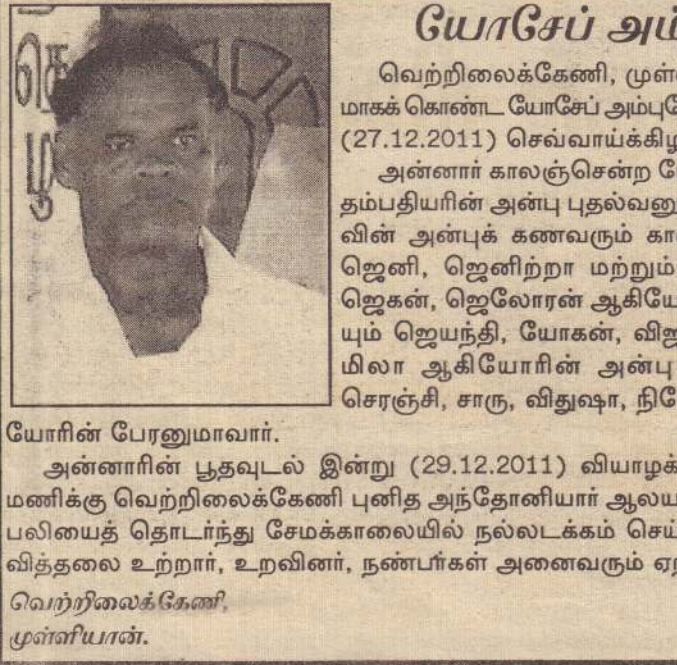 யோசேப் அம்
வெற்றிலைக்கேணி, முள்
மாகக் கொண்ட யோசேப் அம்பு
(27.12.2011) செவ்வாய்க்கிழ
அன்னார் காலஞ்சென்ற
தம்பதியரின் அன்பு புதல்வனு
வின் அன்புக் கணவரும் கா
ஜெனி, ஜெனிற்றா மற்றும்
ஜெகன், ஜெலோரன் ஆகியோ
யும் ஜெயந்தி, யோகன், விஜ
மிலா ஆகியோரின் அன்பு
செரஞ்சி, சாரு, விதுஷா, நிரோ
யோரின் பேரனுமாவார்.
அன்னாரின் பூதவுடல் இன்று (29.12.2011) வியாழக்
மணிக்கு வெற்றிலைக்கேணி புனித அந்தோனியார் ஆலய
பலியைத் தொடர்ந்து சேமக்காலையில் நல்லடக்கம் செய்
வித்தலை உற்றார், உறவினர், நண்பர்கள் அனைவரும் ஏற்
வெற்றிலைக்கேணி,
முள்ளியான்.